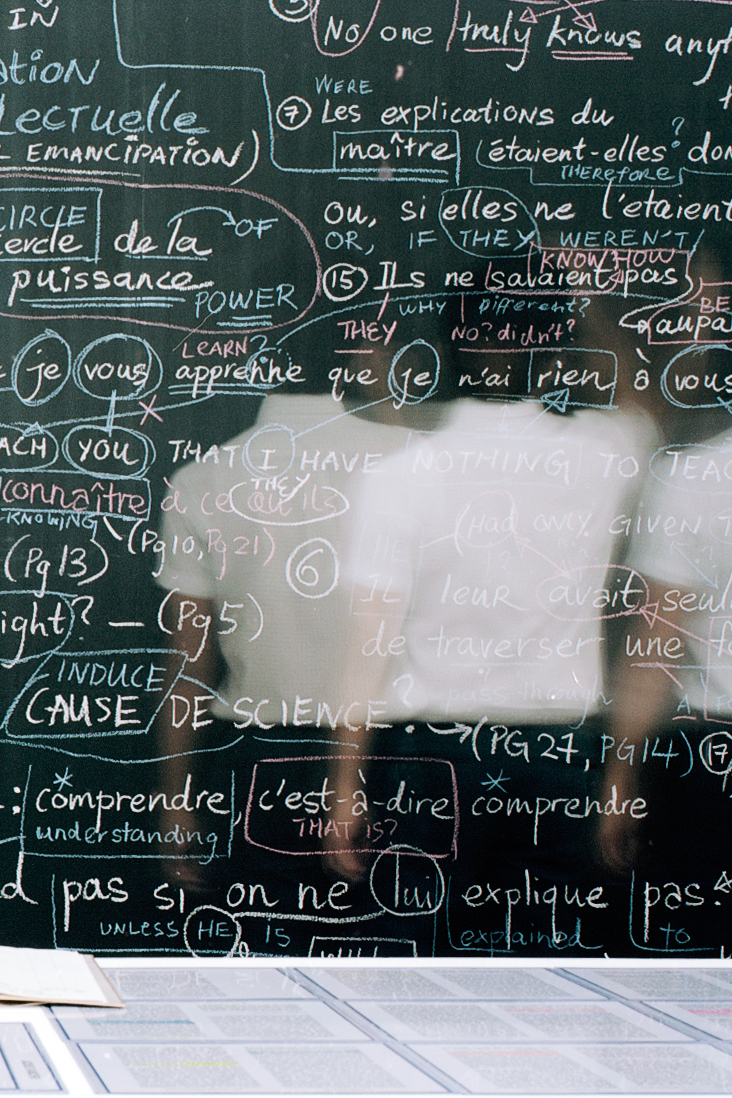 IN
No one truly knows
WERE
⑦ Les explications du
Lectuelle
maître étaient-elles ?
EMANCIPATION)
THEREFORE
ou, si elles ne l'étaient
CIRCLE OF
OR, IF THEY WEREN'T
de la
KNOW HOW
puissance
⑮ ILs ne savaient pas
POWER
WHY Different?
THEY NO? didn't?
LEARN?
je vous apprenne que je n'ai rien à vous
YOU THAT I HAVE NOTHING TO
connaître à ce qu'ils
THEY
KNOWING
(Had ONLY GIVEN
(Pg 13) (Pg10, Pg 21) ⑥
IL leur avait
? — (Pg 5)
de traverser une
INDUCE
pass through
CAUSE DE SCIENCE ? A
→ (PG 27, PG 14) ⑰
: comprendre, c'est-à-dire comprendre
understanding THAT IS?
pas si on ne lui explique pas.
UNLESS HE IS explained to